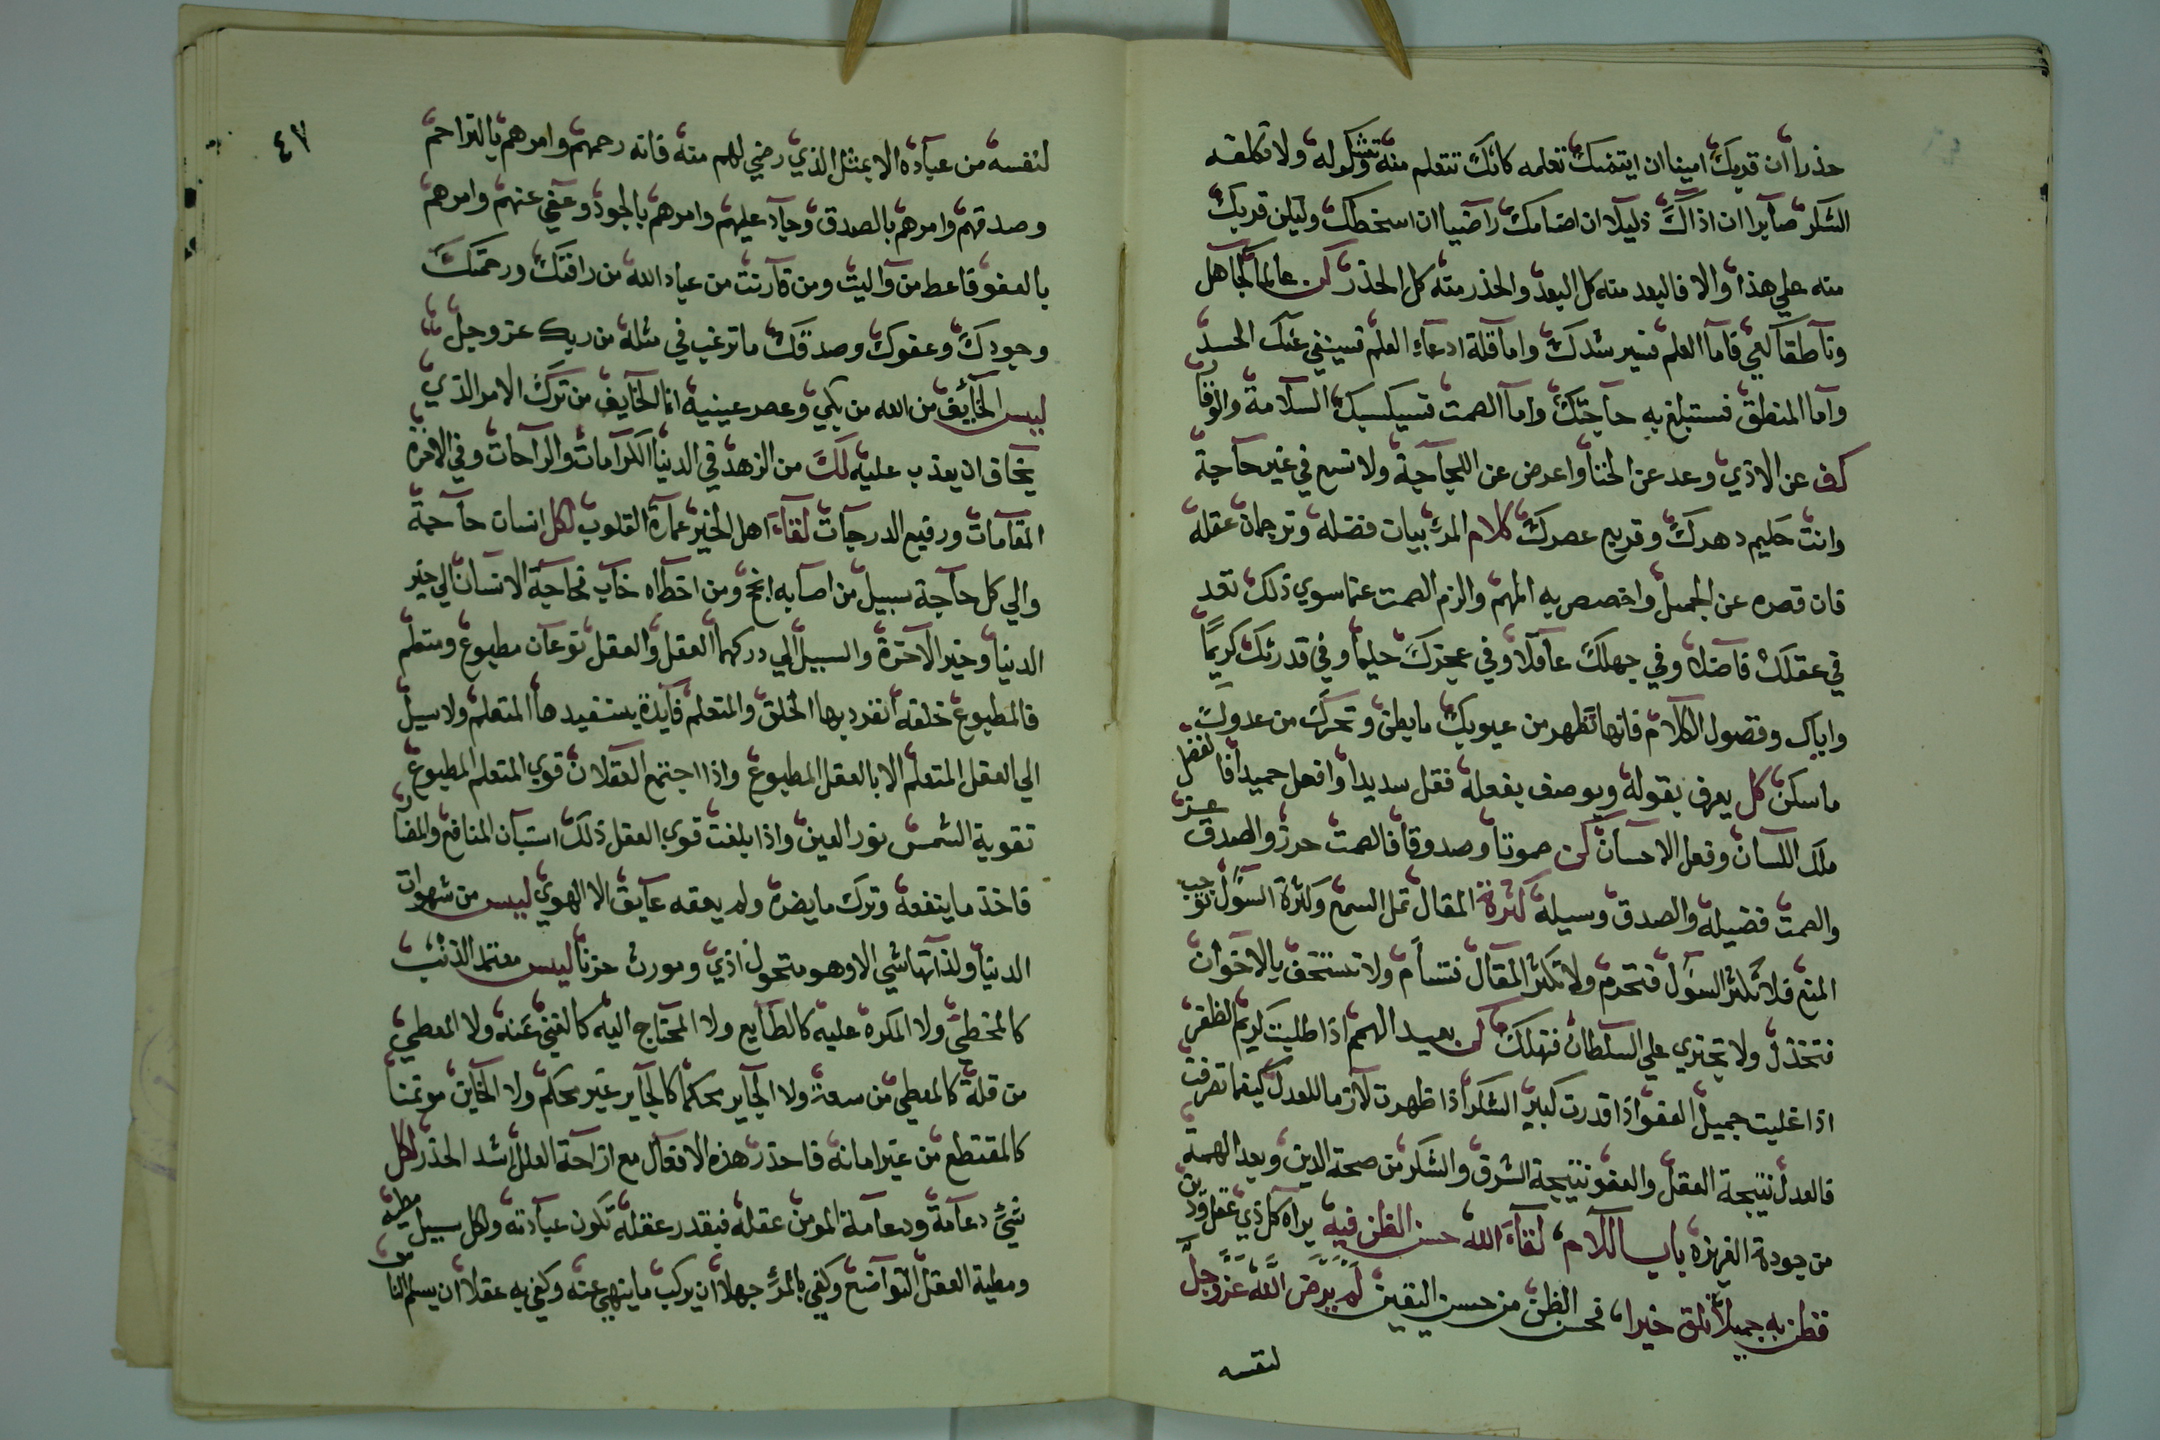 حذرا ان قربك امينا ان ايتمنك تعلمه كانك تتعلم منه وتشكر له ولا تكلفه
الشكر صابرا ان اذاك ذليلا ان اضامك راضيا ان اسخطك وليكن قربك
منه علي هذا والا فالبعد منه كل البعد والحذر منه كل الحذر كن عالما كجاهل
وناطقا كعي فاما العلم فيرشدك واما قلة ادعاء العلم فسينفي عنك الحسد
واما المنطق فستبلغ به حاجتك واما الصمت فسيكسبك السلامة والوقار
كف عن الاذي وعد عن الخنا واعرض عن اللجاجة ولا تسع في غير حاجة
وانت حليم دهرك وقريع عصرك كلام المرء بيان فضله وترجمان عقله
فان قصره عن الجميل واخصص به المهم والزم الصمت عما سوي ذلك تعد
في عقلك فاضلا وفي جهلك عاقلا وفي عجزك حليما وفي قدرتك كريما
واياك وفضول الكلام فانها تظهر من عيوبك ما بطن وتحرك من عدوك
ما سكن كل يعرف بقوله ويوصف بفعله فقل سديدا وافعل حميدا فالفضل
ملك اللسان وفعل الاحسان كن صموتا وصدوقا فالصمت حرز والصدق عز
والصمت فضيله والصدق وسيله كثرة المقال تمل السمع وكثرة السؤل توجب
المنع فلا تكثر السؤل فتحرم ولا تكثر المقال فتسأم ولا تستخف بالاخوان
فتخذل ولا تجتري علي السلطان فتهلك كن بعيد الهمم اذا طلبت كريم الظفر
اذا غلبت جميل العفو اذا قدرت كبير الشكر اذا ظهرت لازما للعدل كيفما تصرفت
فالعدل نتيجة العقل والعفو نتيجة الشرف والشكر من صحة الدين وبعد الهمة
من جودة الغريزة باب اللام لقاء الله حسن الظن فيه يراه كل ذي عقل ودين
فظن به جميلا تلق خيرا فحسن الظن من حسن اليقين لم يرض الله عز وجل
لنفسه
٤٧
لنفسه من عباده الا بمثل الذي رضي لهم منه فانه رحمهم وامرهم بالتراحم
وصدقهم وامرهم بالصدق وجاد عليهم وامرهم بالجود وعفي عنهم وامرهم
بالعفو فاعط من واليت ومن قارنت من عباد الله من رافتك ورحمتك
وجودك وعفوك وصدقك ما ترغب في مثله من ربك عز وجل
ليس الخايف من الله من بكي وعصر عينيه انما الخايف من ترك الامر الذي
يخاف ان يعذب عليه لك من الزهد في الدنيا الكرامات والراحات وفي الاخرة
المقامات ورفيع الدرجات لقاء اهل الخير عمارة القلوب لكل انسان حاجة
والي كل حاجة سبيل من اصابه انجح ومن اخطاه خاب فحاجة الانسان الي خير
الدنيا وخير الاخرة والسبيل الي دركهما العقل والعقل نوعان مطبوع ومتعلم
فالمطبوع خلقه انفرد بها الخلق والمتعلم فايدة يستفيدها المتعلم ولا سبيل
الي العقل المتعلم الا بالعقل المطبوع واذا اجتمع العقلان قوي المتعلم المطبوع
تقوية الشمس نور العين واذا بلغت قوي العقل ذلك استبان المنافع والمضار
فاخذ ما ينفعه وترك ما يضره ولم يعقه عايق الا الهوي ليس من شهوات
الدنيا ولذاتها شي الا وهو متحول اذي ومورث حزنا ليس معتمد الذنب
كالمخطي ولا المكره عليه كالطايع ولا المحتاج اليه كالغني عنه ولا المعطي
من قلة كالمعطي من سعة ولا الجاير محكما كالجاير غير محكم ولا الخاين موتمنا
كالمقتطع من غير امانة فاحذر هذه الافعال مع ازاحة العلل اشد الحذر لكل
شيء دعامة ودعامة المومن عقله فبقدر عقله تكون عبادته ولكل سبيل مطية
ومطية العقل التواضع وكفي بالمرء جهلا ان يركب ما ينهي عنه وكفي به عقلا ان يسلم الناس